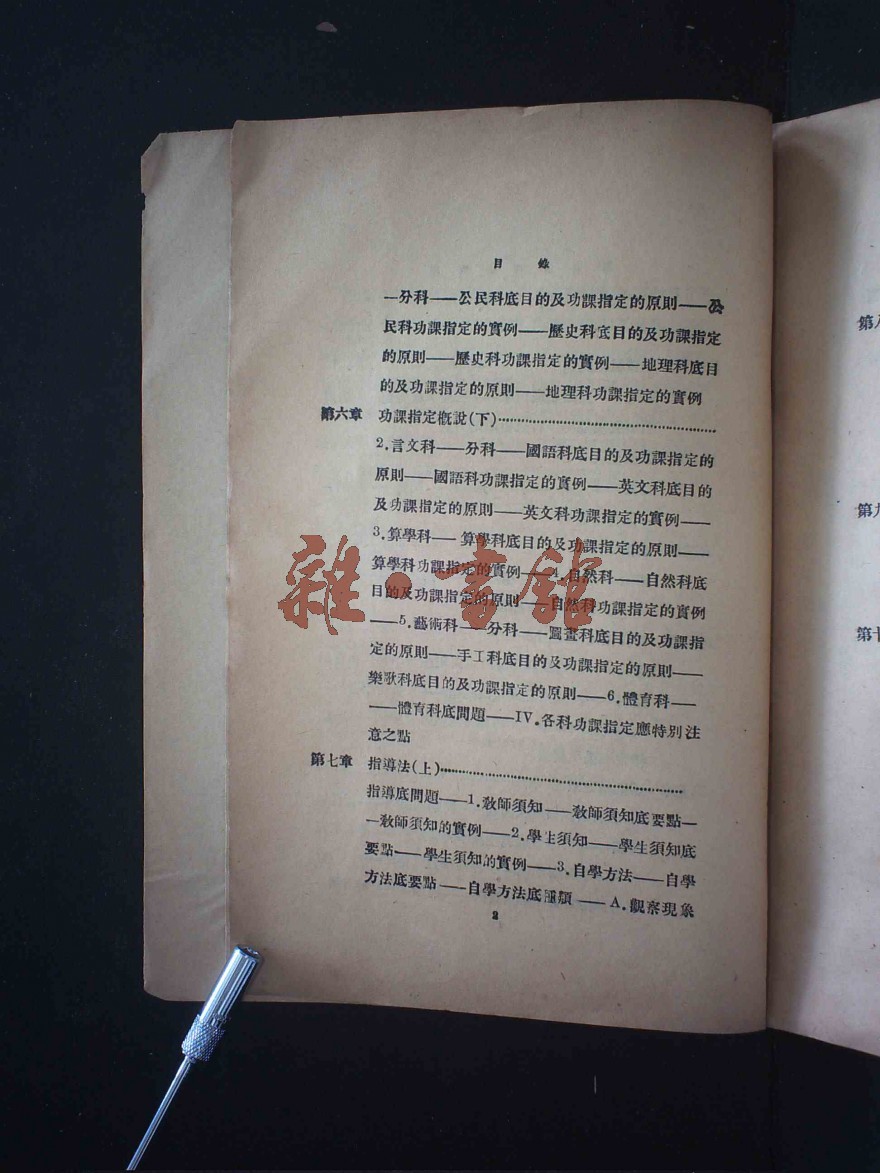 目 錄
—分科——公民科底目的及功課指定的原則——公
民科功課指定的實例——歷史科底目的及功課指定
的原則——歷史科功課指定的實例——地理科底目
的及功課指定的原則——地理科功課指定的實例
第六章 功課指定概說(下)
2.言文科——分科——國語科底目的及功課指定的
原則——國語科功課指定的實例——英文科底目的
及功課指定的原則——英文科功課指定的實例——
3.算學科——算學科底目的及功課指定的原則——
算學科功課指定的實例——4.自然科——自然科底
目的及功課指定的原則——自然科功課指定的實例
——5.藝術科——分科——圖畫科底目的及功課指
定的原則——手工科底目的及功課指定的原則——
樂歌科底目的及功課指定的原則——6.體育科——
——體育科底問題——IV.各科功課指定應特別注
意之點
第七章 指導法(上)
指導底問題——1.教師須知——教師須知底要點—
—教師須知的實例——2.學生須知——學生須知底
要點——學生須知的實例——3.自學方法——自學
方法底要點——自學方法底種類——A.觀察現象
2
第
第九
第十
雜·書館